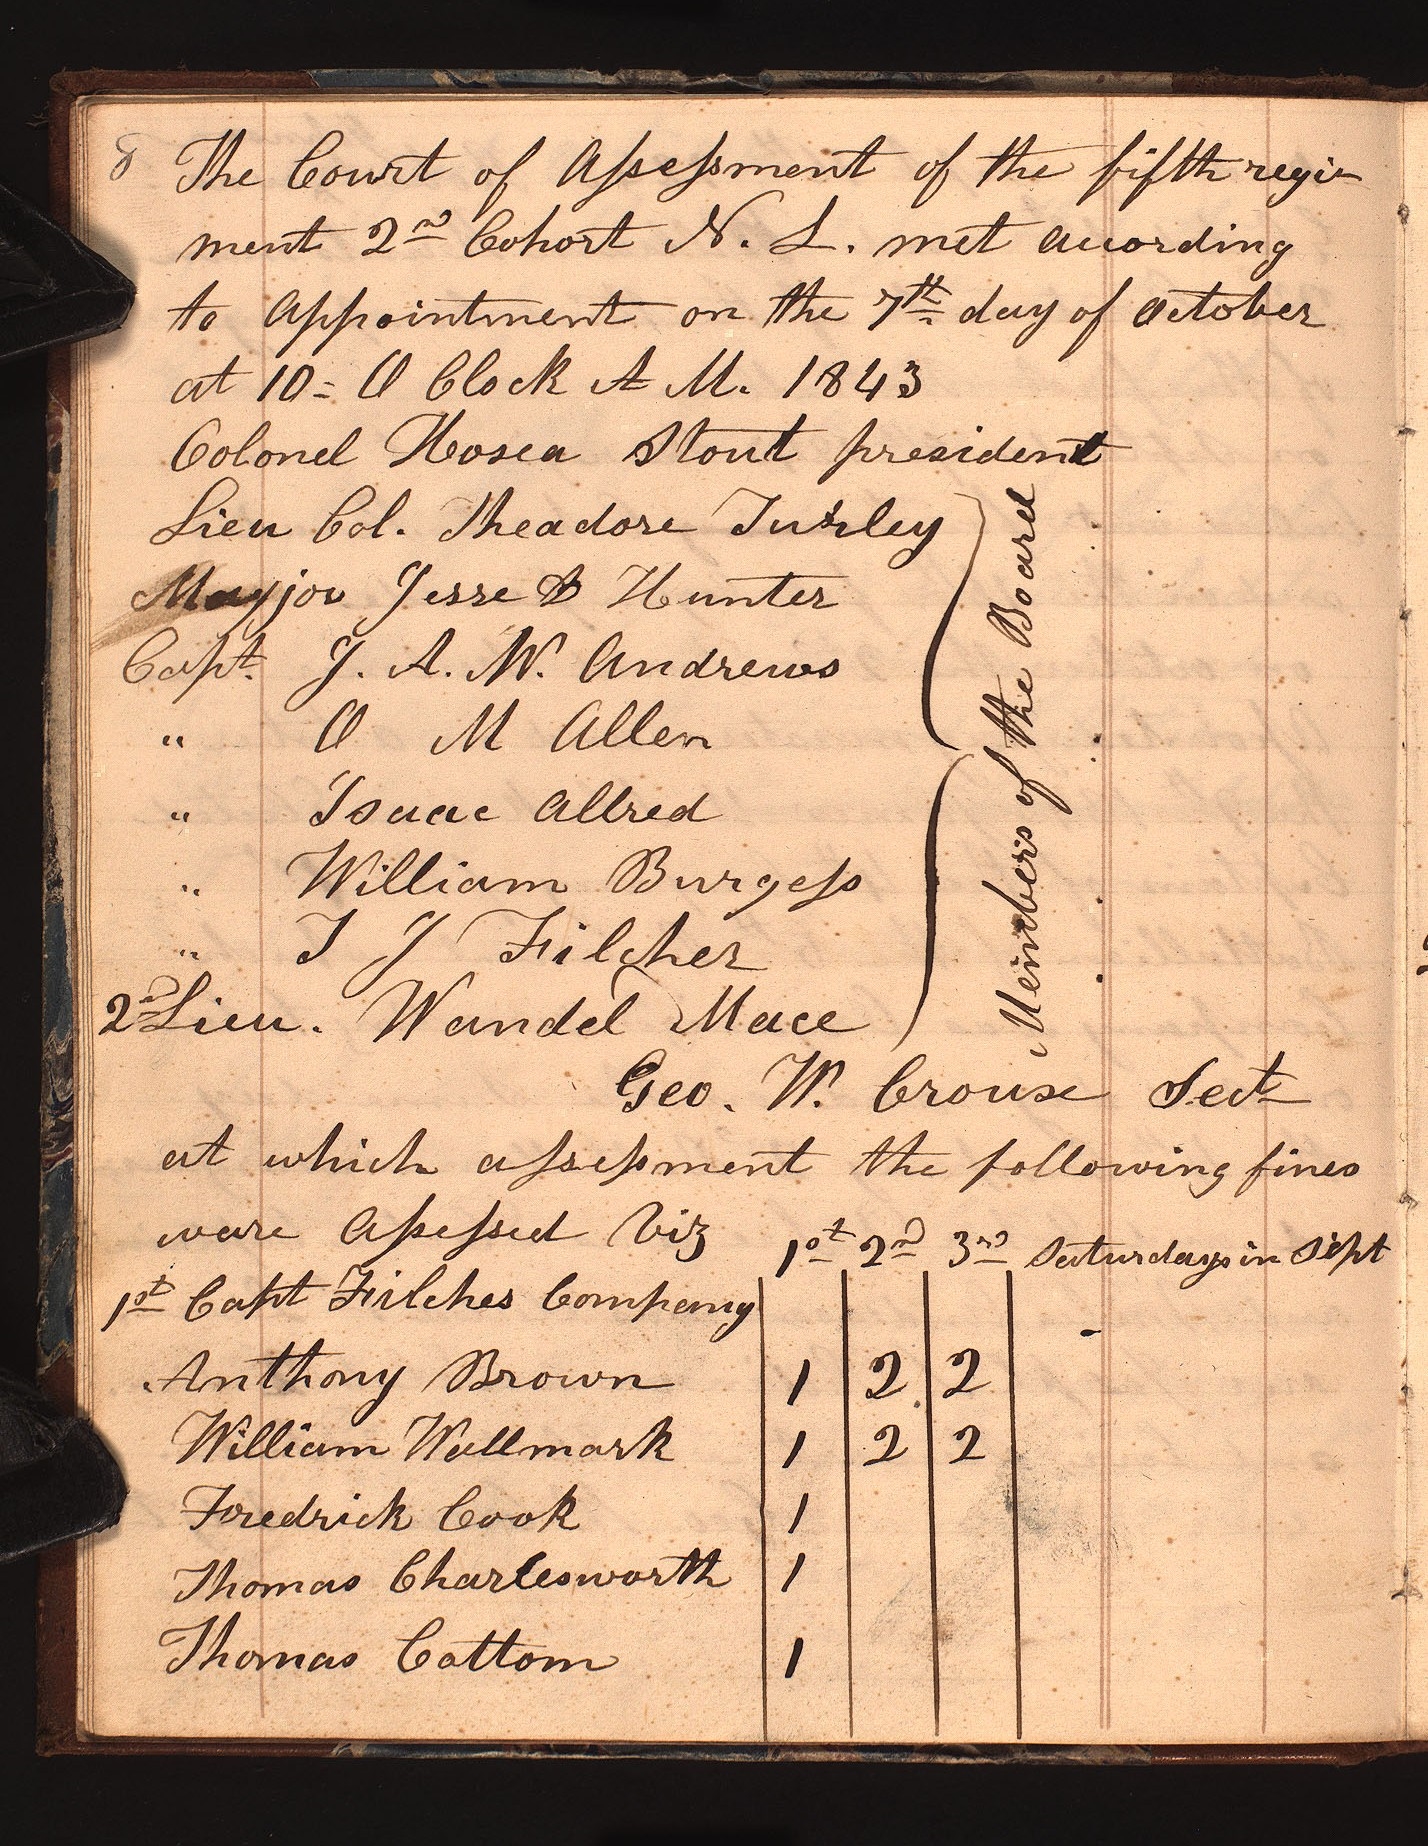 8 The Court of Assessment of the fifth regi-
ment 2nd Cohort N. L. met acording
to appointment on the 7th day of October
at 10= O Clock A M. 1843
Colonel Hosea Stout president
Lieu Col. Theadore Turley
Mayjor Jesse D Hunter
Capt. J. A. W. Andrews
" O M Allen
" Isaac Allred
" William Burgess
" T J Filcher
2nd Lieu. Wandel Mace
Members of the Board
Geo. W. Crouse Sect
at which assessment the following fines
ware assessed Viz 1st 2nd 3rd Saturdays in Sept
1st Capt Filches Company
Anthony Brown 1 2 2
William Wallmark 1 2 2
Fredrick Cook 1
Thomas Charlesworth 1
Thomas Cottom 1